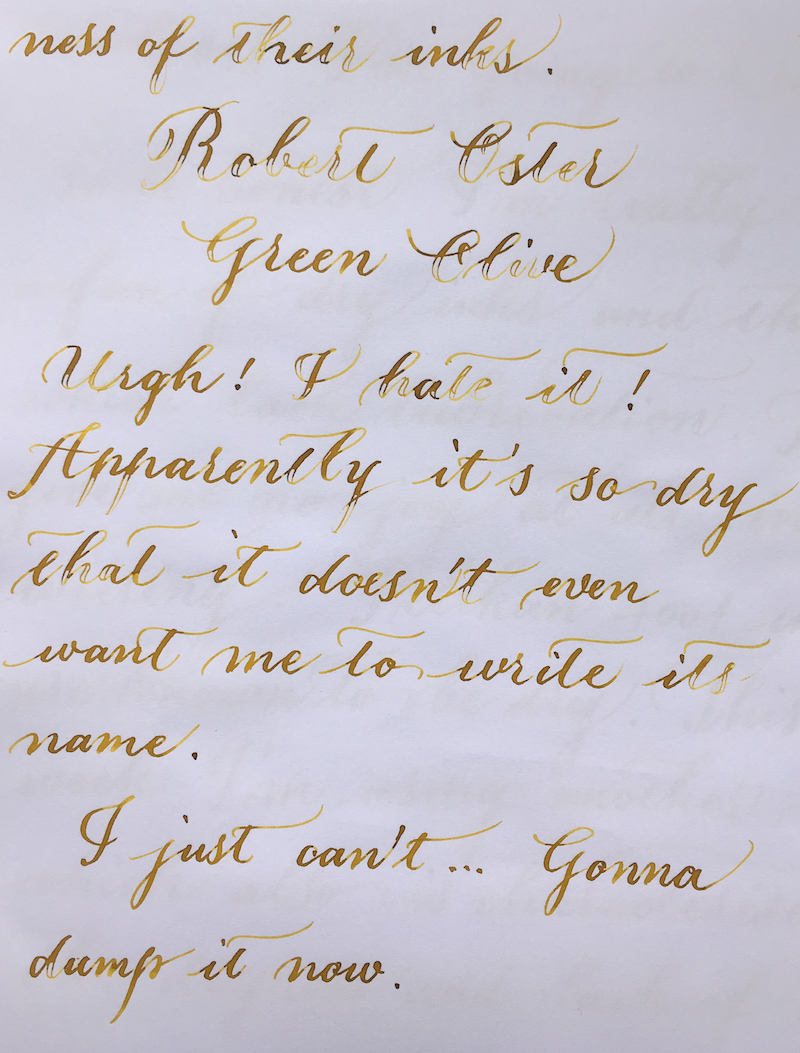 ness of their inks.
Robert Oster
Green Olive
Urgh! I hate it!
Apparently it's so dry
that it doesn't even
want me to write its
name.
I just can't... Gonna
dump it now.